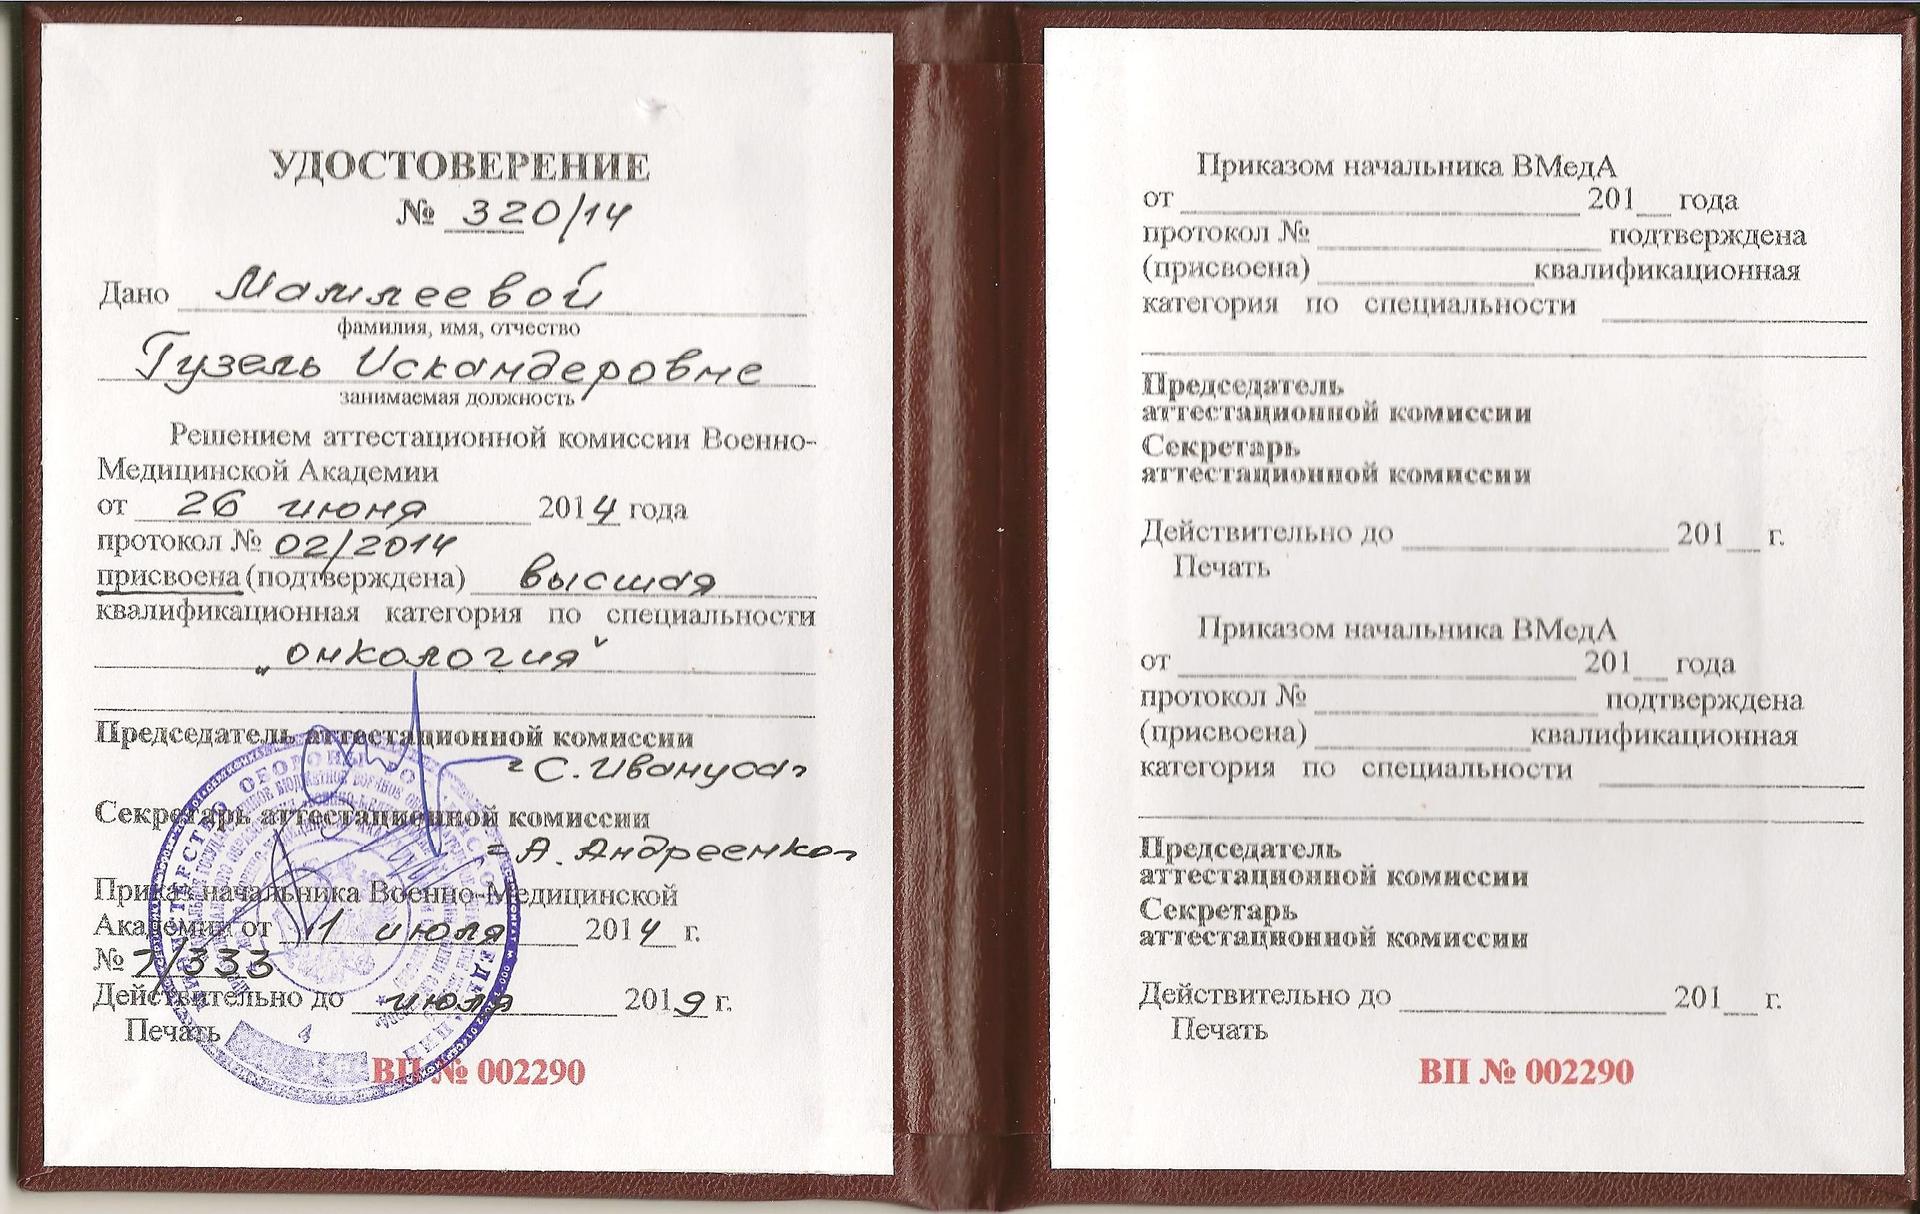 УДОСТОВЕРЕНИЕ
№ 320/14
Дано Мамлеевой
фамилия, имя, отчество
Гузель Искандеровне
занимаемая должность
Решением аттестационной комиссии Военно-
Медицинской Академии
от 26 июня 2014 года
протокол № 02/2014
присвоена (подтверждена) высшая
квалификационная категория по специальности
„онкология“
Председатель аттестационной комиссии
С. Ивануса
Секретарь аттестационной комиссии
А. Андреенко
Приказ начальника Военно-Медицинской
Академии от 1 июля 2014 г.
№ 7/333
Действительно до июля 2019 г.
Печать
ВП № 002290
Приказом начальника ВМедА
от 201 года
протокол № подтверждена
(присвоена) квалификационная
категория по специальности
Председатель
аттестационной комиссии
Секретарь
аттестационной комиссии
Действительно до 201 г.
Печать
Приказом начальника ВМедА
от 201 года
протокол № подтверждена
(присвоена) квалификационная
категория по специальности
Председатель
аттестационной комиссии
Секретарь
аттестационной комиссии
Действительно до 201 г.
Печать
ВП № 002290